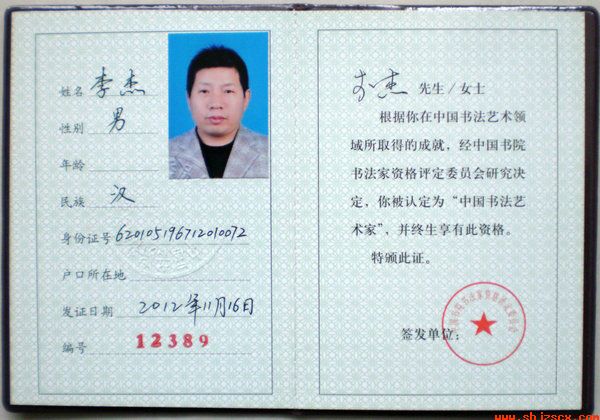 姓名 李杰
性别 男
年龄
民族 汉
身份证号 620105196712010072
户口所在地
发证日期 2012年11月16日
编号 12389
李杰 先生/女士
根据你在中国书法艺术领
域所取得的成就，经中国书院
书法家资格评定委员会研究决
定，你被认定为“中国书法艺
术家”，并终生享有此资格。
特颁此证。
签发单位：
www.shjzscx.com